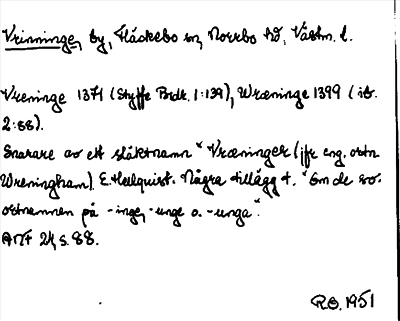 Vrinninge, by, Fläckebo sn, Norrbo hd, Västm. l.
Vreninge 1371 (Styffe Bidr. 1:139), Wræninge 1399 (ib.
2:88).
Snarare av ett släktnamn *Vræninger (jfr eng. ortn.
Wreningham). E. Hellquist. Några tillägg t. "Om de sv.
ortnamnen på -inge, -unge o. -unga".
ANF 24, s. 88.
R.O. 1951